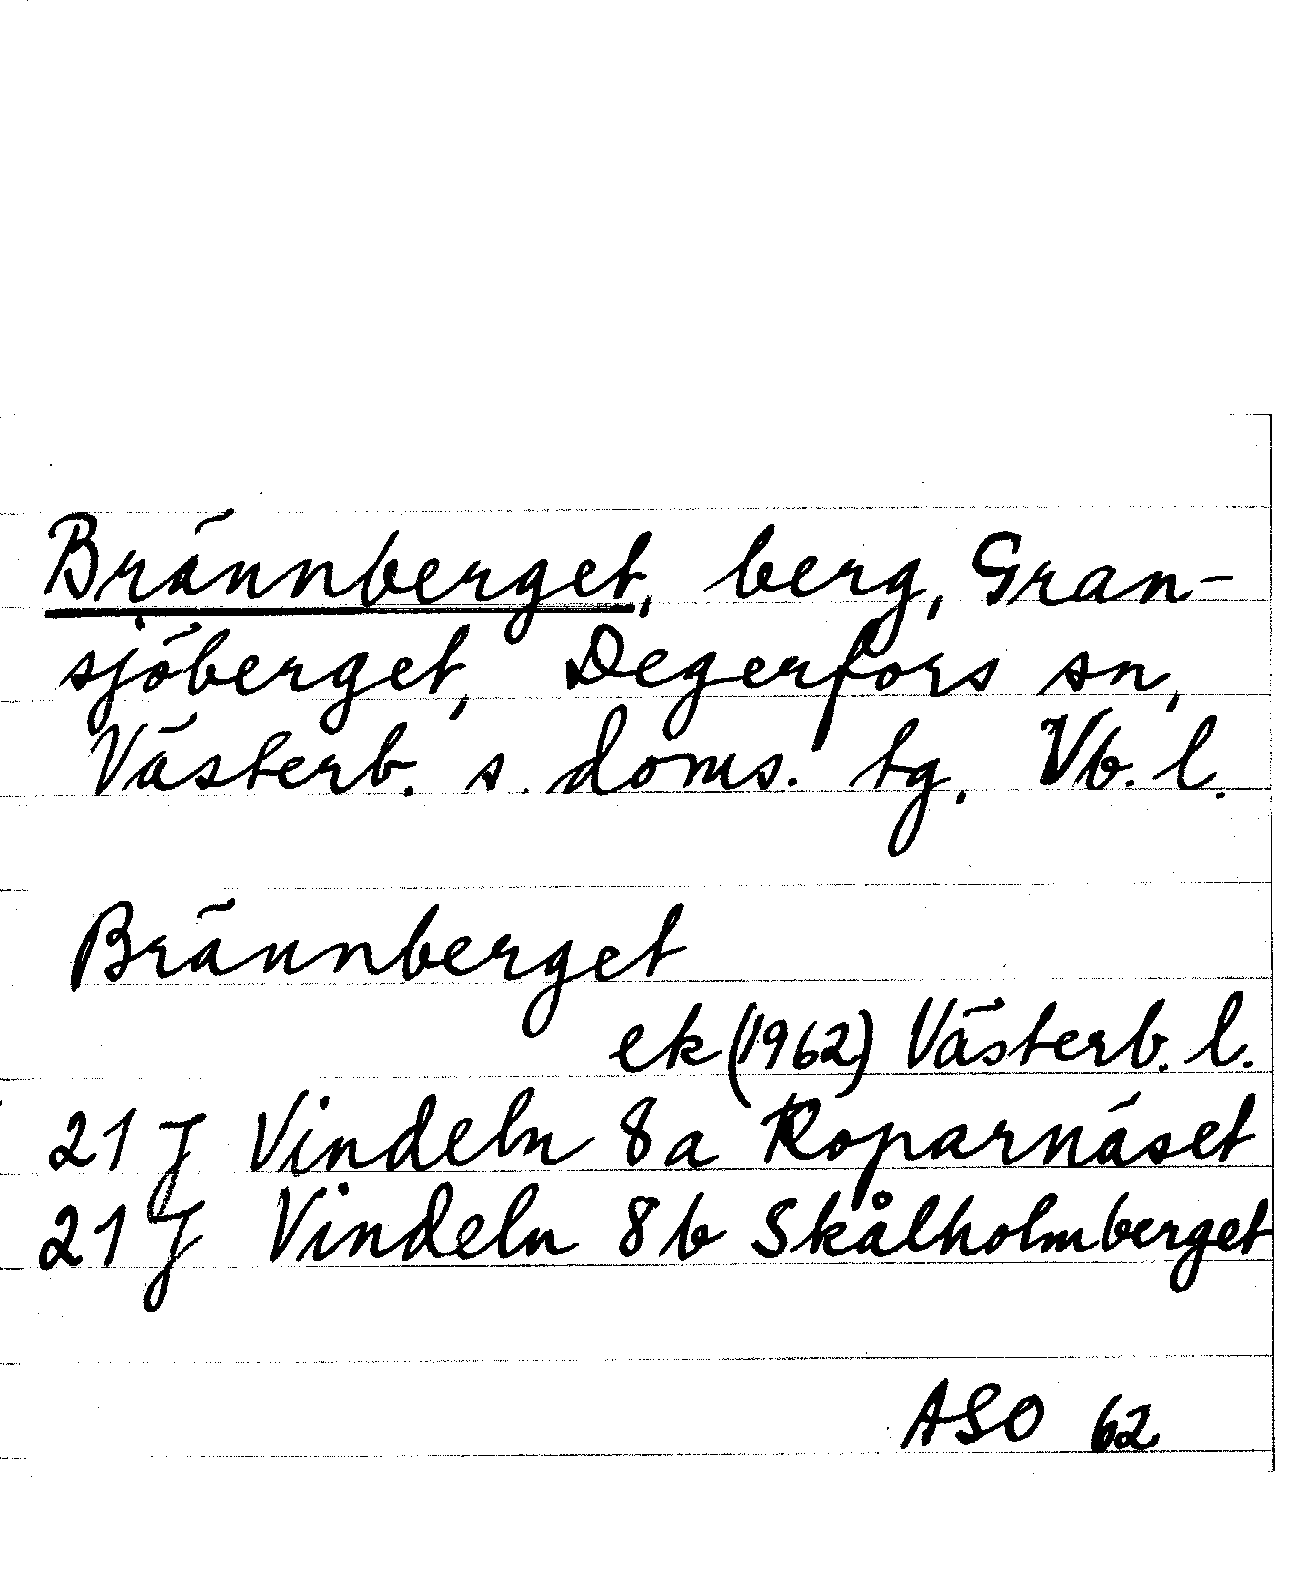 Brännberget, berg, Gran-
sjöberget, Degerfors sn,
Västerb. s. doms. tg. Vb. l.
Brännberget
ek (1962) Västerb. l.
21 J Vindeln 8a Roparnäset
21 J Vindeln 8b Skålholmberget
ASO 62